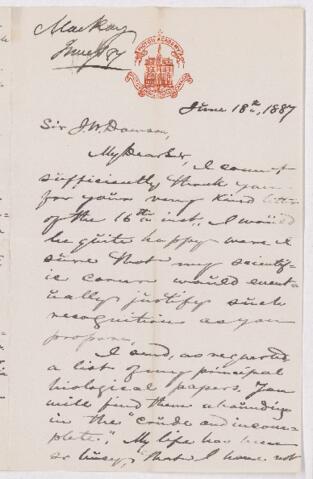 MacKay
June/87
PICTOU ACADEMY
June 18th, 1887
Sir J. W. Dawson,
My Dear Sir, I cannot
sufficiently thank you
for your very kind letter
of the 16th inst. I would
be quite happy were I
sure that my scientif-
ic career would event-
ually justify such
recognition as you
propose.
I send, as requested
a list of my principal
biological papers. You
will find them abounding
in the "crude and incom-
plete." My life has been
so busy, that I have not